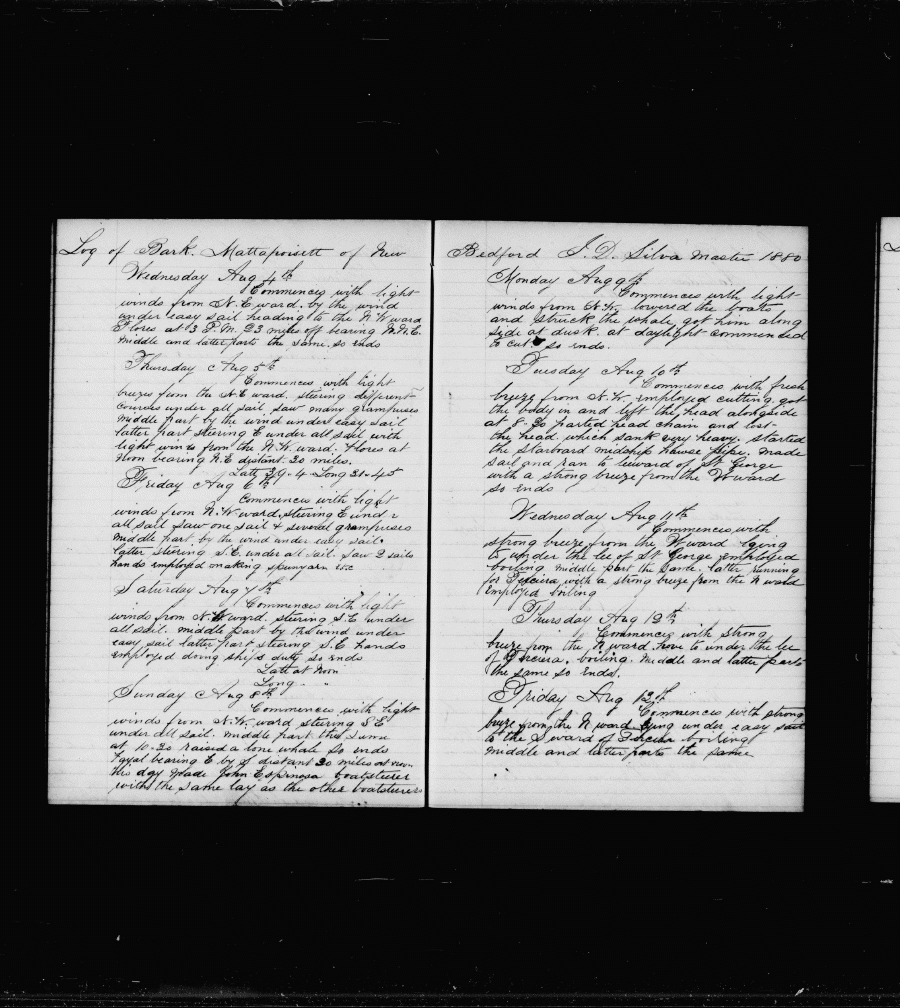 Log of Bark. Mattapoisett of New
Wednesday Aug 4th
Commences with light
winds from N.E ward. by the wind
under easy sail heading to the N.W ward
Flores at 3 P.M. 23 miles off bearing N.N.E
Middle and latter parts the same. so ends
Thursday Aug 5th
Commences with light
breezes from the N.E ward. steering different
courses under all sail saw many grampuses
Middle part by the wind under easy sail
latter part steering E under all sail with
light winds from the N.W. ward. Flores at
Noon bearing N.E distant. 20 miles.
Latt 39-4 Long 31-45
Friday Aug 6th
Commences with light
winds from N.W. ward. steering E under
all sail saw one sail & several grampuses
Middle part. by the wind under easy sail.
latter steering S.E. under all sail. Saw 2 sails
hands employed making spunyarn &c
Saturday Aug 7th
Commences with light
winds from N.W ward. steering S.E under
all sail. middle part by the wind under
easy sail latter part steering S.E hands
employed doing ship's duty so ends
Latt at Noon
Long - "
Sunday Aug 8th
Commences with light
winds from N.W. ward steering S E
under all sail. middle part the same
at 10-20 raised a lone whale so ends
Fayal bearing E by S distant 20 miles at noon
this day made John Espinosa boatsteerer
with the same lay as the other boatsteerers
Bedford J. D. Silva Master 1880
Monday Aug 9th
Commences with light
winds from N.W. lowered the boats
and struck the whale got him along
side at dusk. at daylight commenced
to cut so ends.
Tuesday Aug 10th
Commences with fresh
breeze from N.W. employed cutting. got
the body in and left the head alongside
at 8-30 parted head chain and lost
the head which sank very heavy. started
the starboard midship hawse pipe. made
sail and ran to leeward of St George
with a strong breeze from the W ward
so ends
Wednesday Aug 11th
Commences with
strong breeze from the W ward laying
to under the lee of St George employed
boiling middle part the same. latter running
for Terceira with a strong breeze from the N ward
Employed boiling
Thursday Aug 12th
Commences with strong
breeze from the N ward. hove to under the lee
of Terceira. boiling. middle and latter parts
the same so ends.
Friday Aug 13th
Commences with strong
breeze from the N ward lying under easy sail
to the S ward of Terceira boiling
middle and latter parts the same